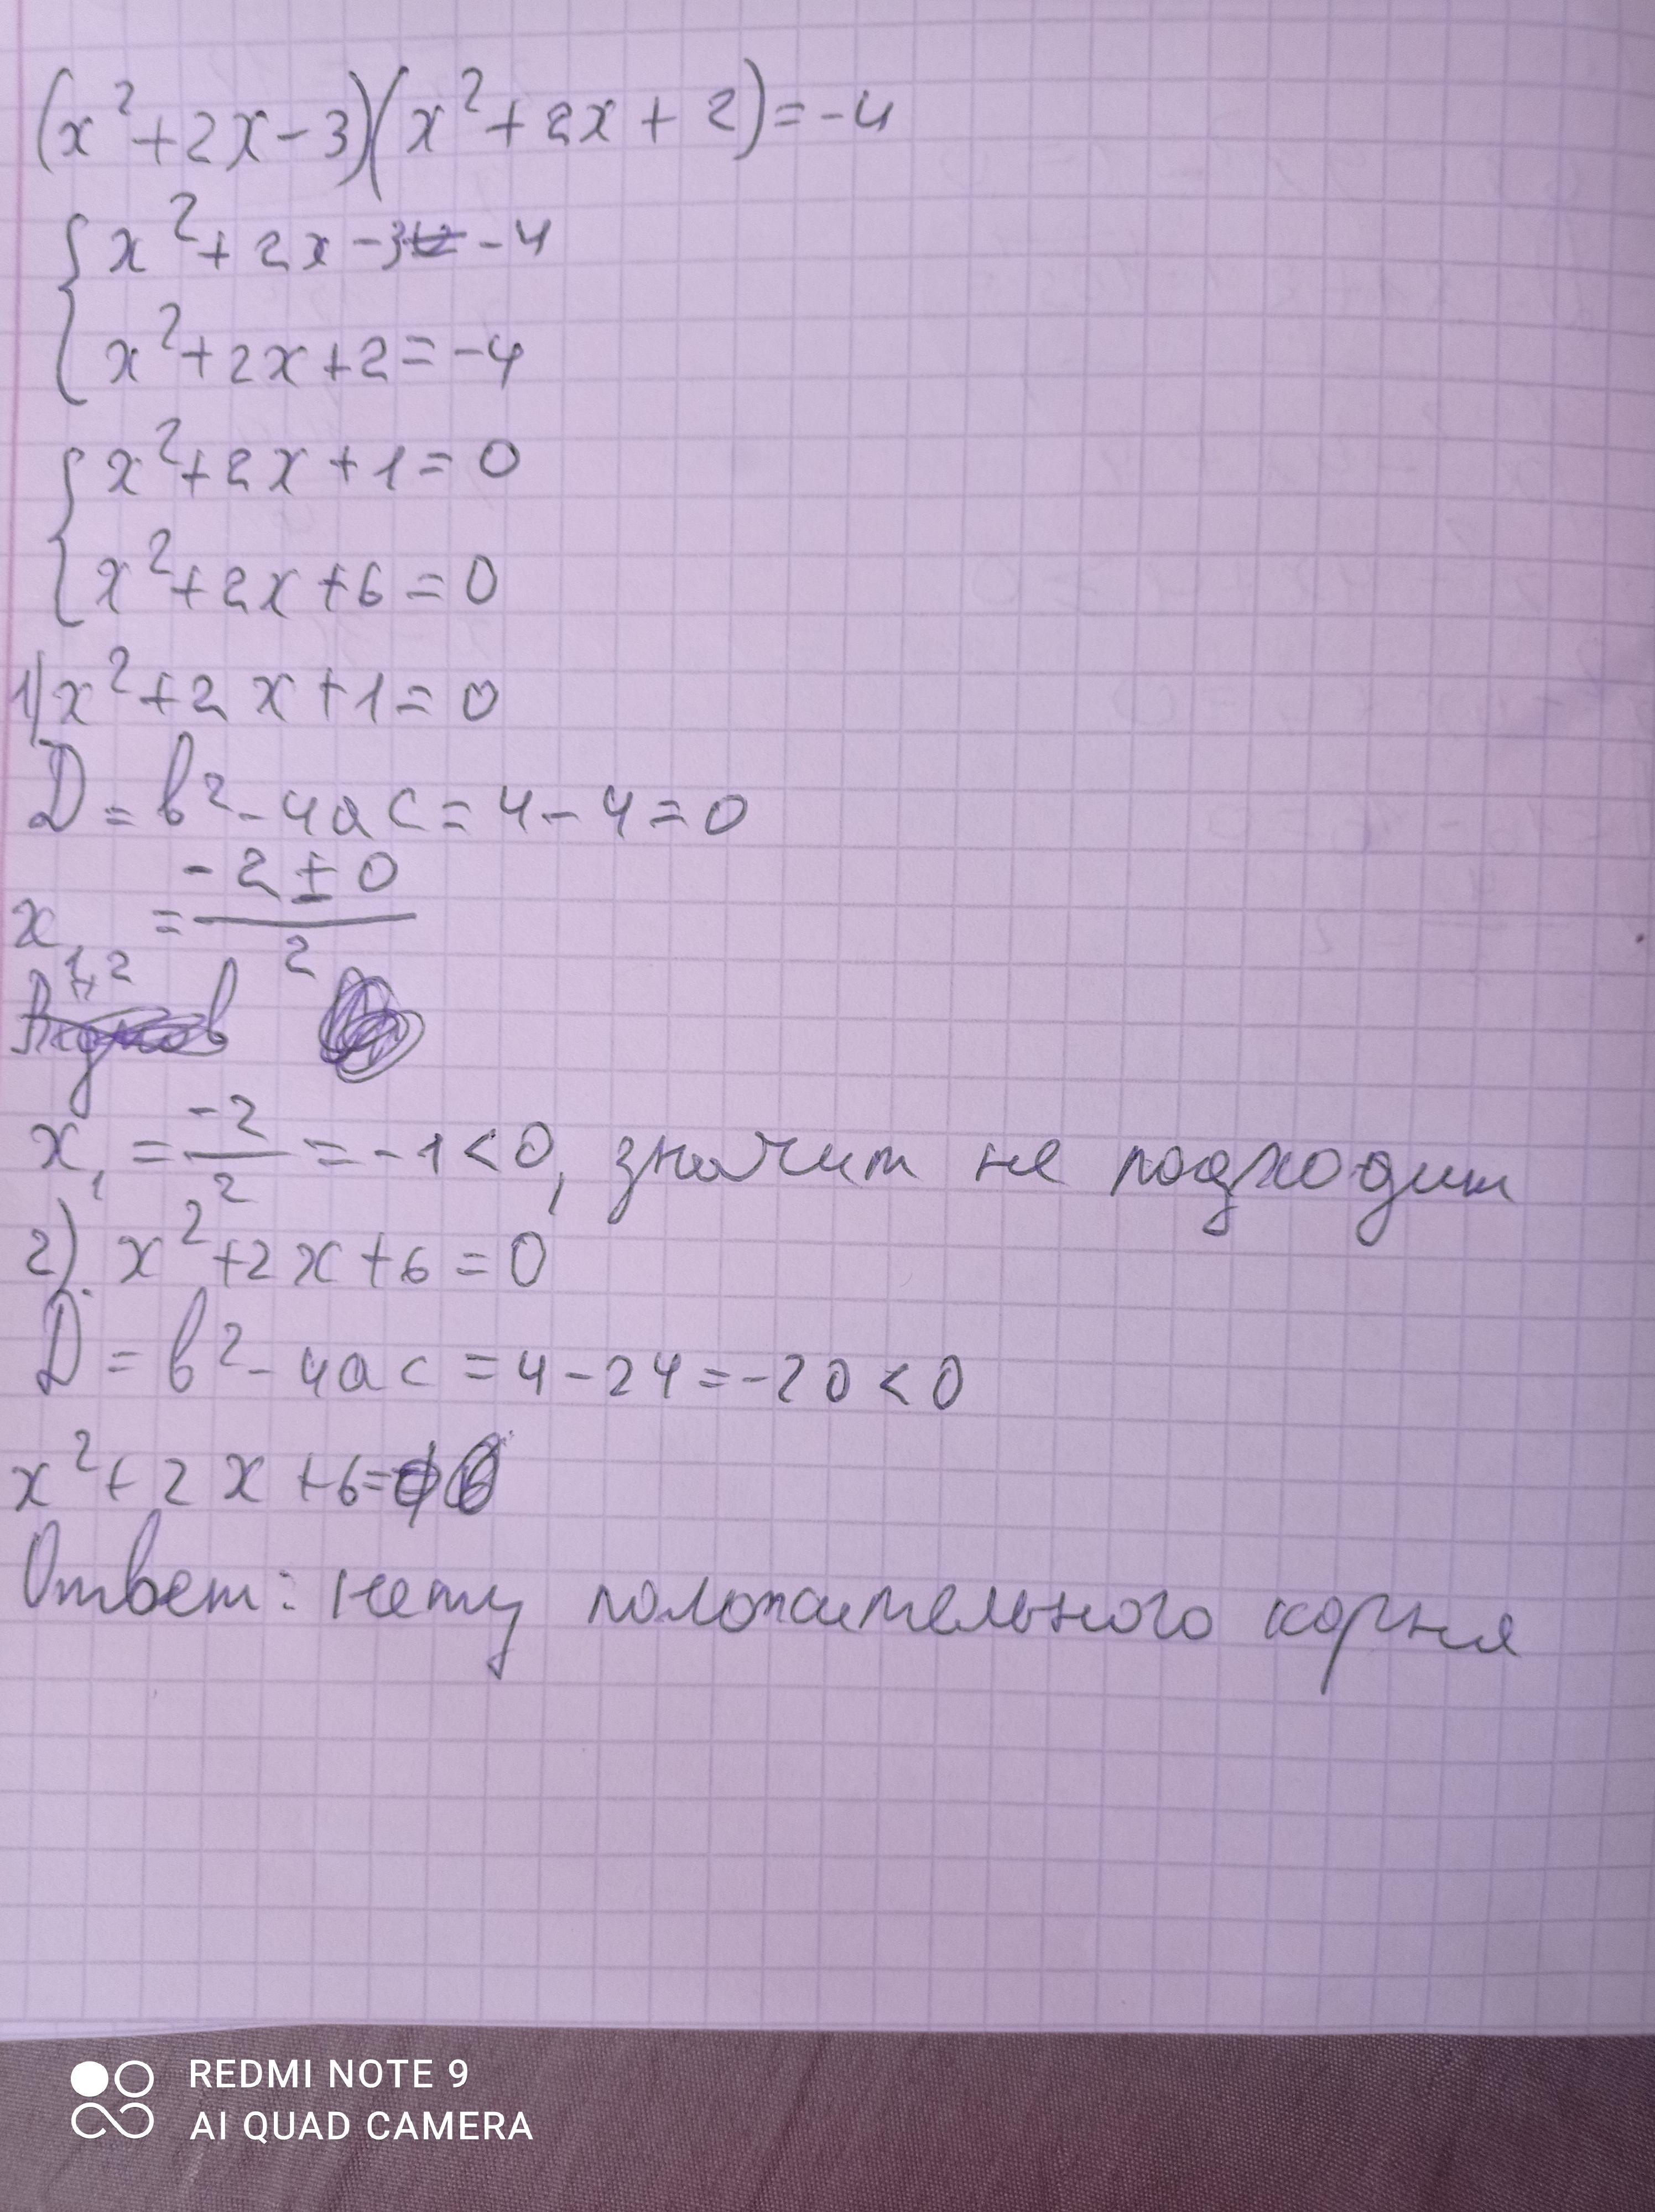 (x²+2x-3)(x²+2x+2)=-4
{x²+2x-3=-4
x²+2x+2=-4
{x²+2x+1=0
x²+2x+6=0
1)x²+2x+1=0
D=b²-4ac=4-4=0
x₁,₂=(-2±0)/2
x₁=-2/2=-1<0, значит не подходит
2). x²+2x+6=0
D=b²-4ac=4-24=-20<0
x²+2x+6=
Ответ: нету положительного корня
REDMI NOTE 9
AI QUAD CAMERA